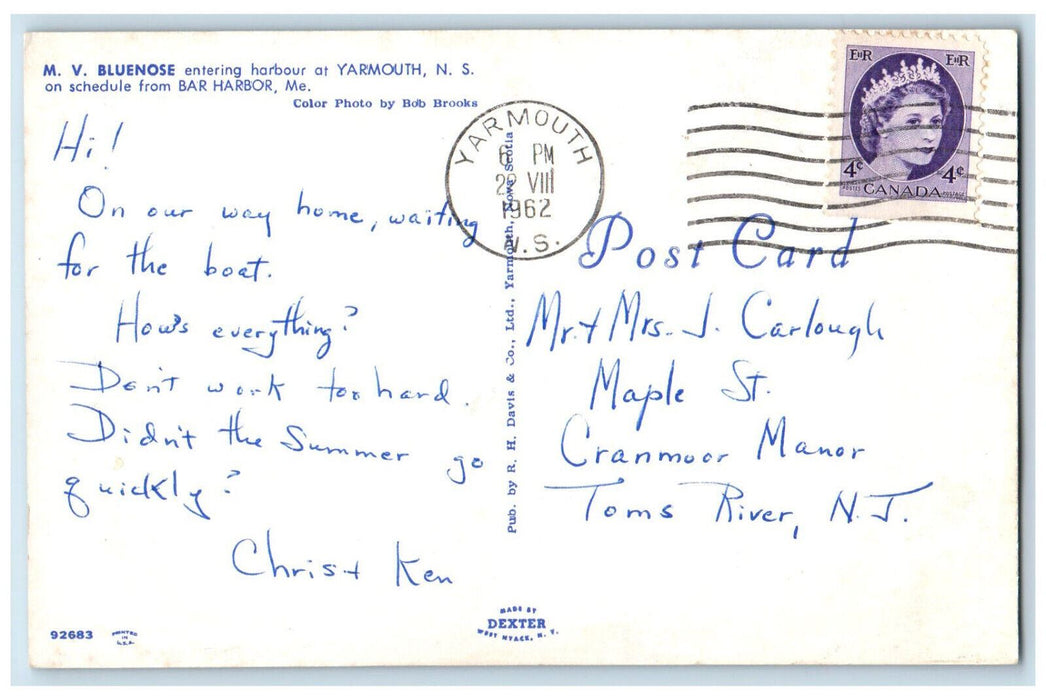 M. V. BLUENOSE entering harbour at YARMOUTH, N. S.
on schedule from BAR HARBOR, Me.
Color Photo by Bob Brooks
Hi!
On our way home, waiting
for the boat.
How's everything?
Don't work too hard.
Didn't the Summer go
quickly?
Chris + Ken
92683
PRINTED
IN
U.S.A.
Pub. by R. H. Davis & Co., Ltd., Yarmouth, Nova Scotia
MADE BY
DEXTER
WEST NYACK, N. Y.
YARMOUTH
6 PM
VIII
1962
N.S.
EIIR EIIR
4¢ 4¢
POSTES CANADA POSTAGE
Post Card
Mr. + Mrs. J. Carlough
Maple St.
Cranmoor Manor
Toms River, N.J.